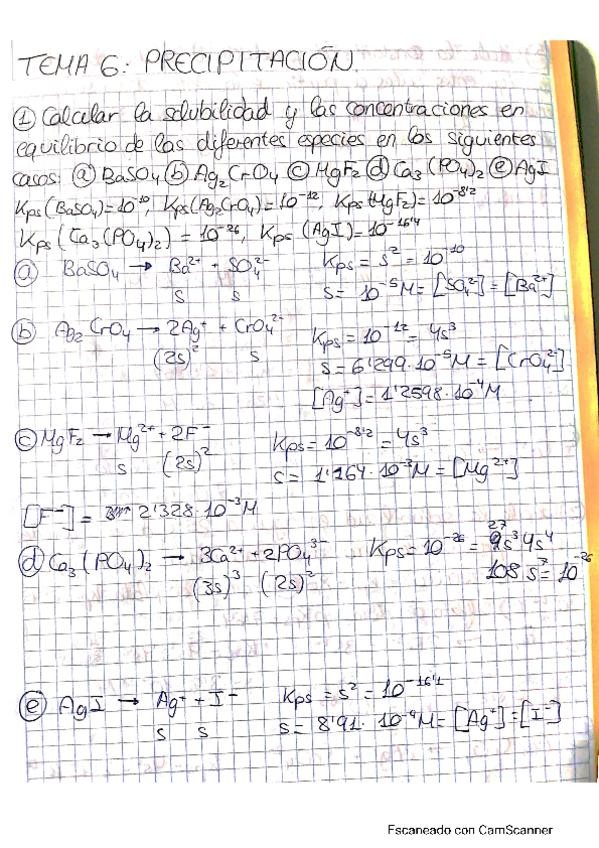 TEMA 6: PRECIPITACIÓN.
① Calcular la solubilidad y las concentraciones en
equilibrio de las diferentes especies en los siguientes
casos: ⓐ BaSO4 ⓑ Ag2CrO4 ⓒ MgF2 ⓓ Ca3(PO4)2 ⓔ AgI
Kps(BaSO4)=10^-10, Kps(Ag2CrO4)=10^-12, Kps(MgF2)=10^-8'2
Kps(Ca3(PO4)2)=10^-26, Kps(AgI)=10^-16'1
ⓐ BaSO4 → Ba^2+ + SO4^2- Kps = s^2 = 10^-10
s s s = 10^-5 M = [SO4^2-] = [Ba^2+]
ⓑ Ag2CrO4 → 2Ag^+ + CrO4^2- Kps = 10^-12 = 4s^3
(2s)^2 s s = 6'299·10^-5 M = [CrO4^2-]
[Ag^+] = 1'2598·10^-4 M
ⓒ MgF2 → Mg^2+ + 2F^- Kps = 10^-8'2 = 4s^3
s (2s)^2 s = 1'164·10^-3 M = [Mg^2+]
[F^-] = 2'328·10^-3 M
ⓓ Ca3(PO4)2 → 3Ca^2+ + 2PO4^3- Kps = 10^-26 = 27s^3 4s^4
(3s)^3 (2s)^2 108 s^7 = 10^-26
ⓔ AgI → Ag^+ + I^- Kps = s^2 = 10^-16'1
s s s = 8'91·10^-9 M = [Ag^+] = [I^-]
Escaneado con CamScanner